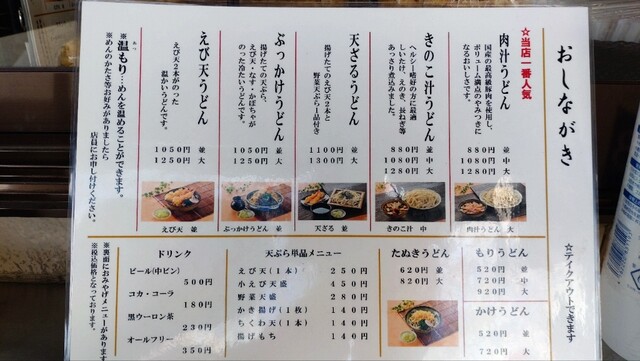 おしながき
☆テイクアウトできます
☆当店一番人気
肉汁うどん
国産の最高級豚肉を使用し、
ボリューム満点のやみつきに
なるおいしさです。
880円 並
1080円 中
1280円 大
肉汁うどん 大
きのこ汁うどん
ヘルシー嗜好の方に最適
しいたけ、えのき、長ねぎ等
あっさり煮込みました。
880円 並
1080円 中
1280円 大
きのこ汁 中
天ざるうどん
揚げたてのえび天2本と
野菜天ぷら1品付き
1100円 並
1300円 大
天ざる 並
ぶっかけうどん
揚げたての天ぷら、
えび天・なす・かぼちゃが
のった冷たいうどんです。
1050円 並
1250円 大
ぶっかけうどん 並
えび天うどん
えび天2本がのった
温かいうどんです。
1050円 並
1250円 大
えび天 並
※温もり…めんを温めることができます。
※めんのかたさ等お好みがありましたら
店員にお申し付けください。
もりうどん
520円 並
720円 中
920円 大
かけうどん
520円 並
720円 大
たぬきうどん
620円 並
820円 大
天ぷら単品メニュー
えび天(1本) 250円
小えび天盛 450円
野菜天盛 280円
かき揚げ(1枚) 140円
ちくわ天(1本) 140円
揚げもち 140円
ドリンク
ビール(中ビン)
500円
コカ・コーラ
180円
黒ウーロン茶
230円
オールフリー
350円
※裏面におみやげメニューがあります
※税込価格となっております。